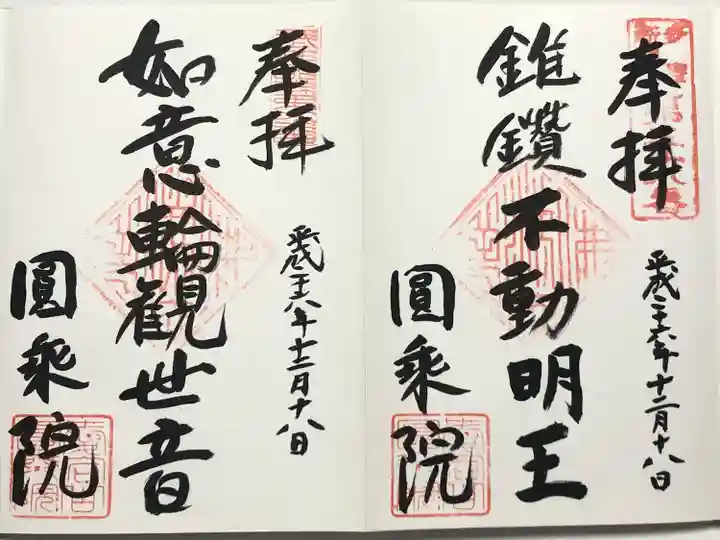 奉拝
錐鑽不動明王
平成二十八年十二月十八日
圓乗院
奉拝
如意輪観世音
平成二十八年十二月十八日
圓乗院